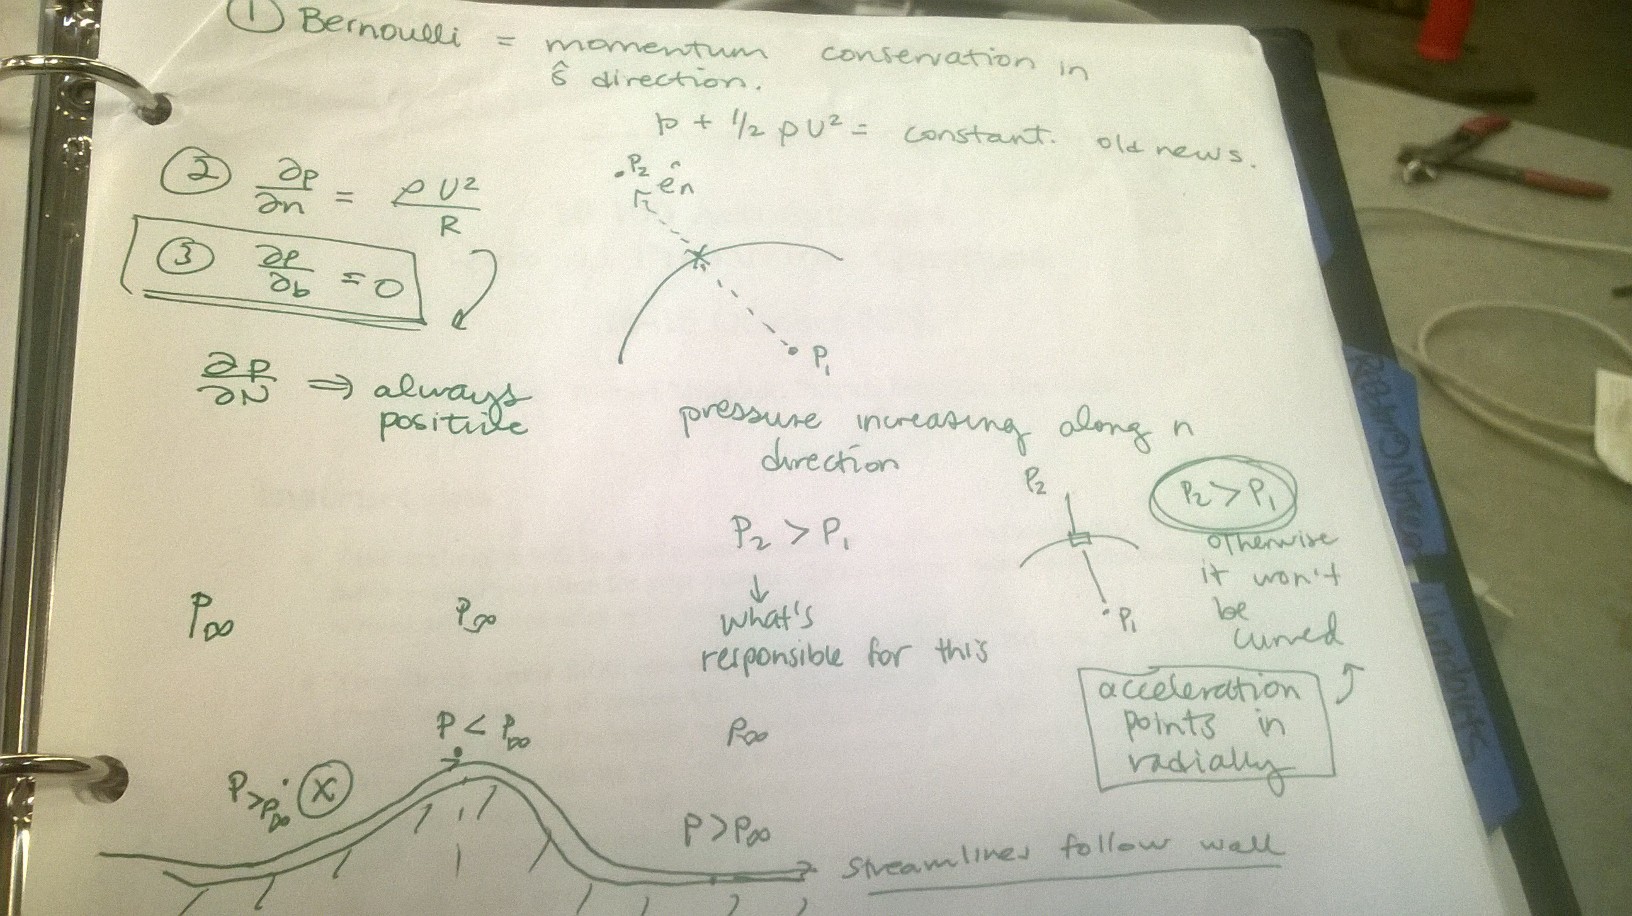 ① Bernoulli = momentum conservation in
ŝ direction.
p + 1/2 ρU² = constant. old news.
② ∂p/∂n = ρU²/R
③ ∂p/∂b = 0
P₂ ên
P₁
∂P/∂N ⇒ always
positive
pressure increasing along n
direction
P₂ > P₁
↓
what's
responsible for this
P₂
P₁
P₂ > P₁
otherwise
it won't
be
curved
acceleration
points in
radially
P∞ P∞
P < P∞ P∞
P>P∞ X
P>P∞
streamlines follow wall